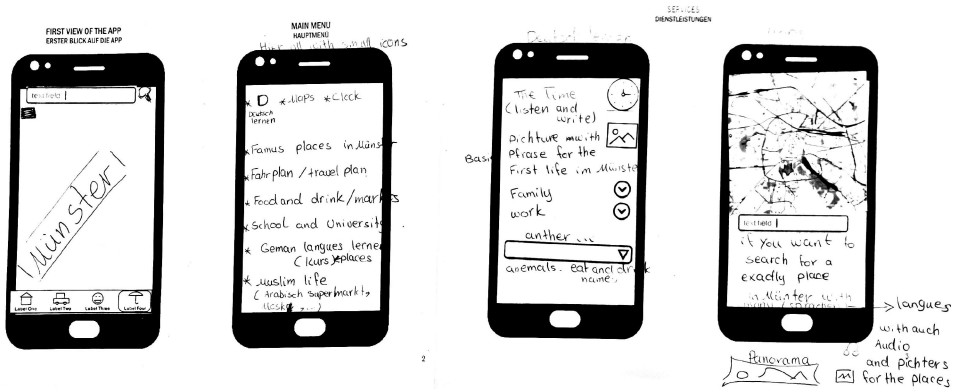 FIRST VIEW OF THE APP
ERSTER BLICK AUF DIE APP
text field
Münster
Label One
Label Two
Label Three
Label Four
MAIN MENU
HAUPTMENÜ
Hier all with small icons
* D * Maps * Clock
Deutsch
lernen
* Famus places in Münster
* Fahrplan / travel plan
* Food and drink/markes
* School and University
* Geman langues lerner
(kurs) places
* muslim life
(Arabisch Supermarkt,
2
SERVICES
DIENSTLEISTUNGEN
Deutsch lernen
The Time
(listen and
write)
Pichture mwith
Pfrase for the
First life im Münster
Basi
Family
work
anther ...
anemals. eat and drink
names
text field
if you want to
search for a
exadly place
in Münter with
langues
with auch
Audio
and pichters
for the places
Panorama